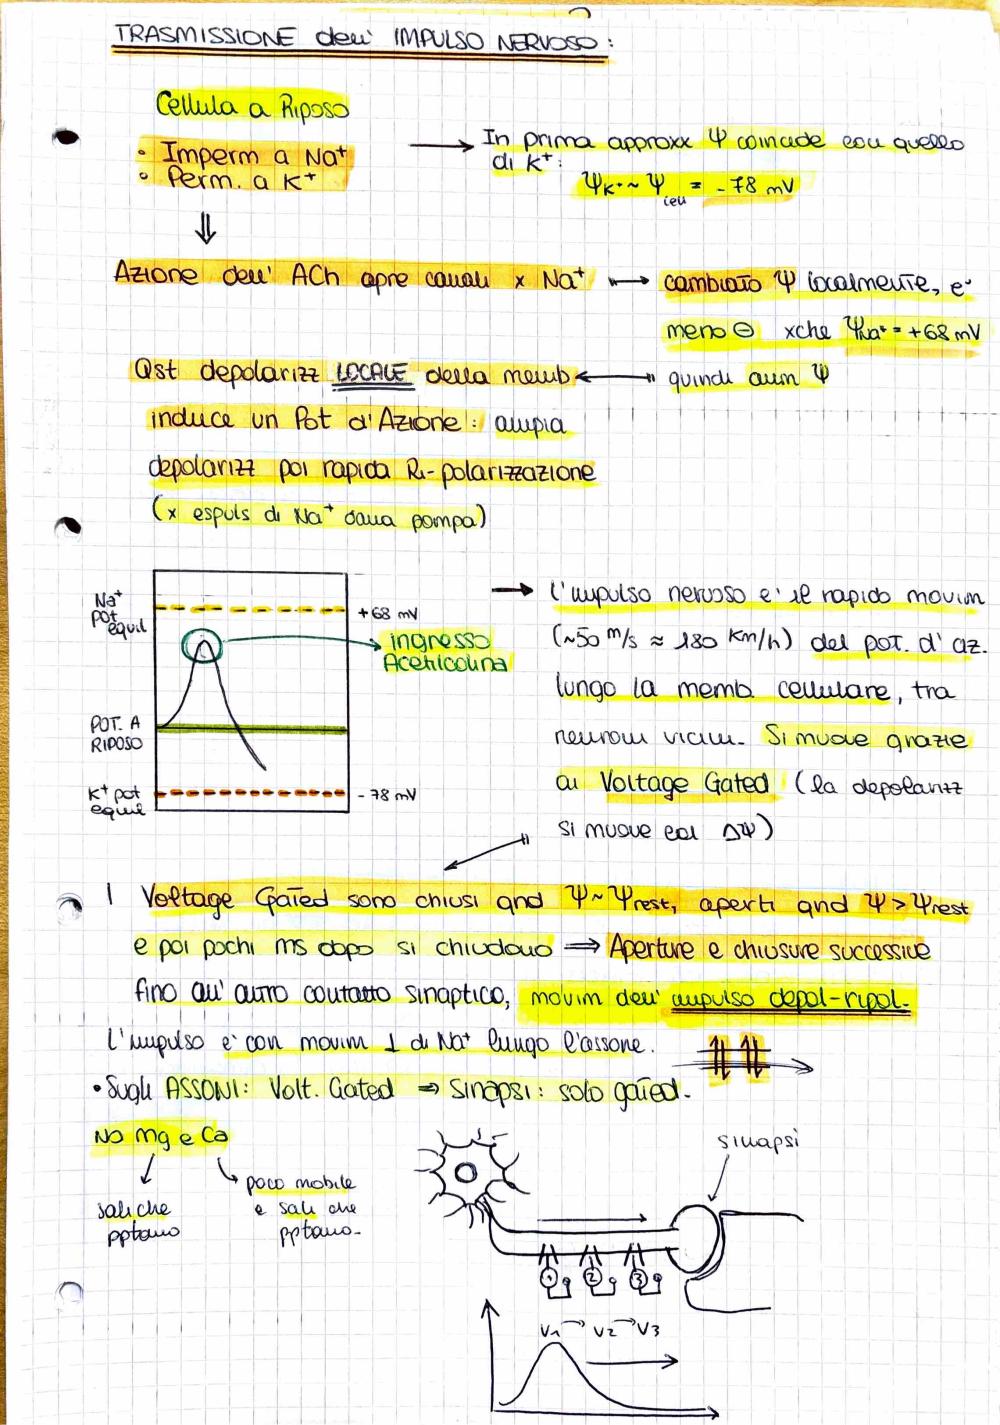 TRASMISSIONE dell' IMPULSO NERVOSO:
Cellula a Riposo
• Imperm a Na⁺
• Perm. a K⁺
→ In prima approxx Ψ coincide con quello
di K⁺:
Ψ_K⁺ ~ Ψ_cell = -78 mV
⇓
Azione dell' ACh apre canali x Na⁺ → cambiato Ψ localmente, e'
meno ⊖ xche Ψ_Na⁺ = +68 mV
quindi aum Ψ
Qst depolarizz LOCALE della memb ←
induce un Pot d'Azione: ampia
depolarizz poi rapida Ri-polarizzazione
(x espuls di Na⁺ dalla pompa)
Na⁺
pot
equil
+68 mV
ingresso
Acetilcolina
POT. A
RIPOSO
K⁺ pot
equil
-78 mV
→ l'impulso nervoso e' il rapido movim
(~50 m/s ≈ 180 Km/h) del POT. d' az.
lungo la memb cellulare, tra
neuroni vicini. Si muove grazie
ai Voltage Gated (la depolarizz
si muove col ΔΨ)
I Voltage Gated sono chiusi qnd Ψ~Ψrest, aperti qnd Ψ > Ψrest
e poi pochi ms dopo si chiudono ⇒ Aperture e chiusure successive
fino all' altro contatto sinaptico, movim dell' impulso depol-ripol.
L'impulso e' con movim ⊥ di Na⁺ lungo l'assone.
• Sugli ASSONI: Volt. Gated ⇒ Sinapsi: solo gated.
No Mg e Ca
sali che
pptano
poco mobile
e sali che
pptano.
sinapsi
1 2 3
V1 → V2 → V3